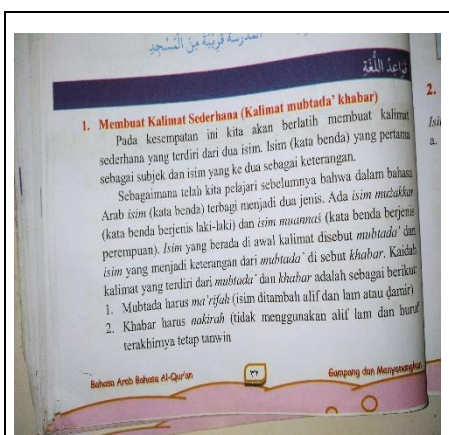 المدرسة قريبة من المسجد
قواعد اللغة
1. Membuat Kalimat Sederhana (Kalimat mubtada' khabar)
Pada kesempatan ini kita akan berlatih membuat kalimat
sederhana yang terdiri dari dua isim. Isim (kata benda) yang pertama
sebagai subjek dan isim yang ke dua sebagai keterangan.
Sebagaimana telah kita pelajari sebelumnya bahwa dalam bahasa
Arab isim (kata benda) terbagi menjadi dua jenis. Ada isim mużakkar
(kata benda berjenis laki-laki) dan isim muannaś (kata benda berjenis
perempuan). Isim yang berada di awal kalimat disebut mubtada' dan
isim yang menjadi keterangan dari mubtada' di sebut khabar. Kaidah
kalimat yang terdiri dari mubtada' dan khabar adalah sebagai berikut
1. Mubtada harus ma'rifah (isim ditambah alif dan lam atau ḍamir)
2. Khabar harus nakirah (tidak menggunakan alif lam dan huruf
terakhirnya tetap tanwin
Bahasa Arab Bahasa Al-Qur'an
٣٢
Gampang dan Menyenangkan
2.
Isi
a.